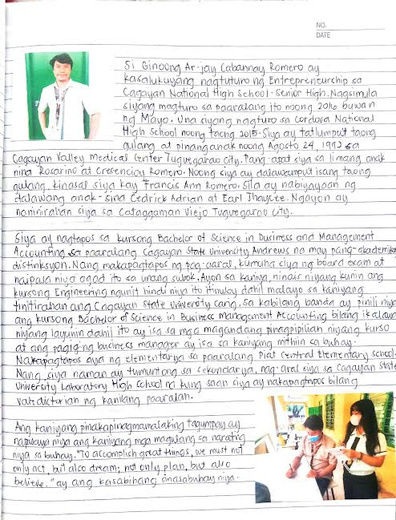 NO.
DATE
Si Ginoong Ar-jay Cabannay Romero ay
kasalukuyang nagtuturo ng Entrepreneurship sa
Cagayan National High School - Senior High. Nagsimula
siyang magturo sa paaralang ito noong 2016 buwan
ng Mayo. Una siyang nagturo sa Cordova National
High School noong taong 2015. Siya ay tatlumput taong
gulang at pinanganak noong Agosto 24, 1992 sa
Cagayan Valley Medical Center Tuguegarao city. Pang-apat siya sa limang anak
nina Rosarino at Cresencia Romero. Noong siya ay dalawamput isang taong
gulang, kinasal siya kay Francis Ann Romero. Sila ay nabiyayaan ng
dalawang anak - sina Cedrick Adrian at Earl Jhaycee. Ngayon ay
naninirahan siya sa Cataggaman Viejo Tuguegarao city.
Siya ay nagtapos sa kursong Bachelor of Science in Business and Management
Accounting sa paaralang Cagayan State University Andrews na may pang-akademikong
distinksyon. Nang makapagtapos ng pag-aaral, kumuha siya ng board exam at
naipasa niya agad ito sa unang subok. Ayon sa kaniya, ninais niyang kunin ang
kursong Engineering ngunit hindi niya ito itinuloy dahil malayo sa kaniyang
tinitirahan ang Cagayan State University Carig, sa kabilang banda ay pinili niya
ang kursong Bachelor of Science in Business Management Accounting bilang ikalawa
niyang layunin dahil ito ay isa sa mga magandang pinagpipilian niyang kurso
at ang pagiging business manager ay isa sa kaniyang mithiin sa buhay.
Nakapagtapos siya ng elementarya sa paaralang Piat Central Elementary School.
Nang siya naman ay tumuntong sa sekondarya, nag-aral siya sa Cagayan State
University Laboratory High School na kung saan siya ay nakapagtapos bilang
valedictorian ng kanilang paaralan.
Ang kaniyang pinakapinagmamalaking tagumpay ay
napasaya niya ang kaniyang mga magulang sa narating
niya sa buhay. "To accomplish great things, we must not
only act, but also dream; not only plan, but also
believe." ay ang kasabihang isinasabuhay niya.